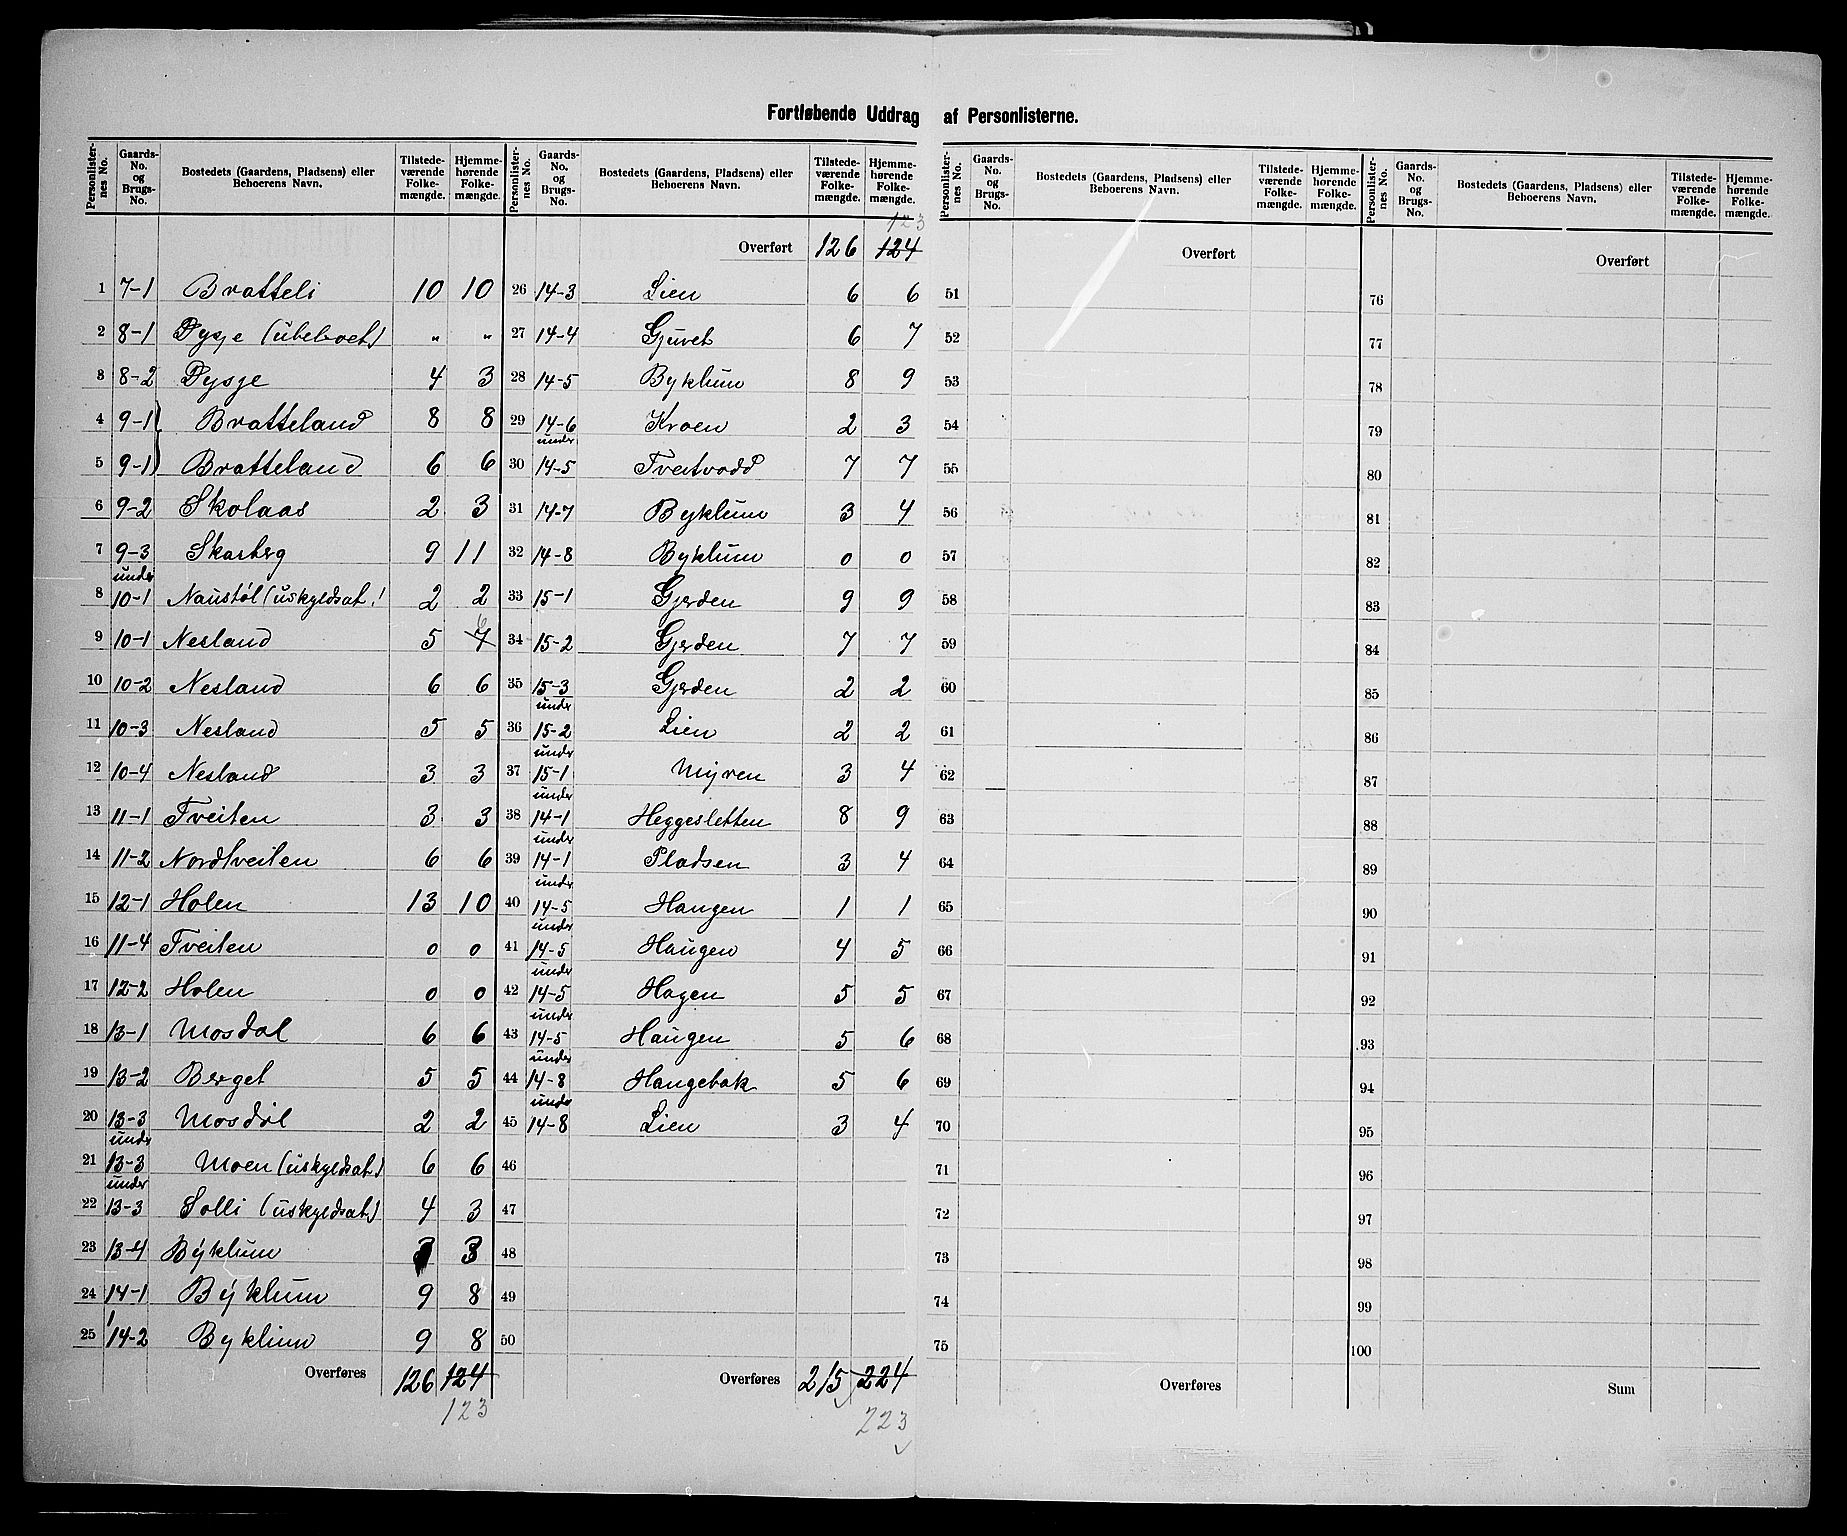 Fortløbende Uddrag af Personlisterne.
Personlister-nes No. Gaards-No. og Brugs-No. Bostedets (Gaardens, Pladsens) eller Beboerens Navn. Tilstede-værende Folke-mængde. Hjemme-hørende Folke-mængde.
Personlister-nes No. Gaards-No. og Brugs-No. Bostedets (Gaardens, Pladsens) eller Beboerens Navn. Tilstede-værende Folke-mængde. Hjemme-hørende Folke-mængde.
Personlister-nes No. Gaards-No. og Brugs-No. Bostedets (Gaardens, Pladsens) eller Beboerens Navn. Tilstede-værende Folke-mængde. Hjemme-hørende Folke-mængde.
Personlister-nes No. Gaards-No. og Brugs-No. Bostedets (Gaardens, Pladsens) eller Beboerens Navn. Tilstede-værende Folke-mængde. Hjemme-hørende Folke-mængde.
1 7-1 Bratteli 10 10
2 8-1 Dysje (ubeboet) " "
3 8-2 Dysje 4 3
4 9-1 Bratteland 8 8
5 9-1 Bratteland 6 6
6 9-2 Skolaas 2 3
7 9-3 Skarberg 9 11
under
8 10-1 Naustøl (uskyldsat.) 2 2
6
9 10-1 Nesland 5 7
10 10-2 Nesland 6 6
11 10-3 Nesland 5 5
12 10-4 Nesland 3 3
13 11-1 Tveiten 3 3
14 11-2 Nordtveiten 6 6
15 12-1 Holen 13 10
16 11-4 Tveiten 0 0
17 12-2 Holen 0 0
18 13-1 Mosdal 6 6
19 13-2 Berget 5 5
20 13-3 Mosdøl 2 2
under
21 13-3 Moen (uskyldsat.) 6 6
under
22 13-3 Solli (uskyldsat.) 4 3
23 13-4 Byklum 3 3
24 14-1 Byklum 9 8
25 14-2 Byklum 9 8
Overføres 126 124
123
123
Overført 126 124
26 14-3 Lien 6 6
27 14-4 Gjuvet 6 7
28 14-5 Byklum 8 9
29 14-6 Kroen 2 3
under
30 14-5 Tveitvodd 7 7
31 14-7 Byklum 3 4
32 14-8 Byklum 0 0
33 15-1 Gjerden 9 9
34 15-2 Gjerden 7 7
35 15-3 Gjerden 2 2
under
36 15-2 Lien 2 2
under
37 15-1 Myren 3 4
under
38 14-1 Heggesletten 8 9
under
39 14-1 Pladsen 3 4
under
40 14-5 Haugen 1 1
under
41 14-5 Haugen 4 5
under
42 14-5 Hagen 5 5
under
43 14-5 Haugen 5 6
under
44 14-8 Haugebak 5 6
under
45 14-8 Lien 3 4
46
47
48
49
50
Overføres 215 224
223
Overført
51
52
53
54
55
56
57
58
59
60
61
62
63
64
65
66
67
68
69
70
71
72
73
74
75
Overføres
Overført
76
77
78
79
80
81
82
83
84
85
86
87
88
89
90
91
92
93
94
95
96
97
98
99
100
Sum